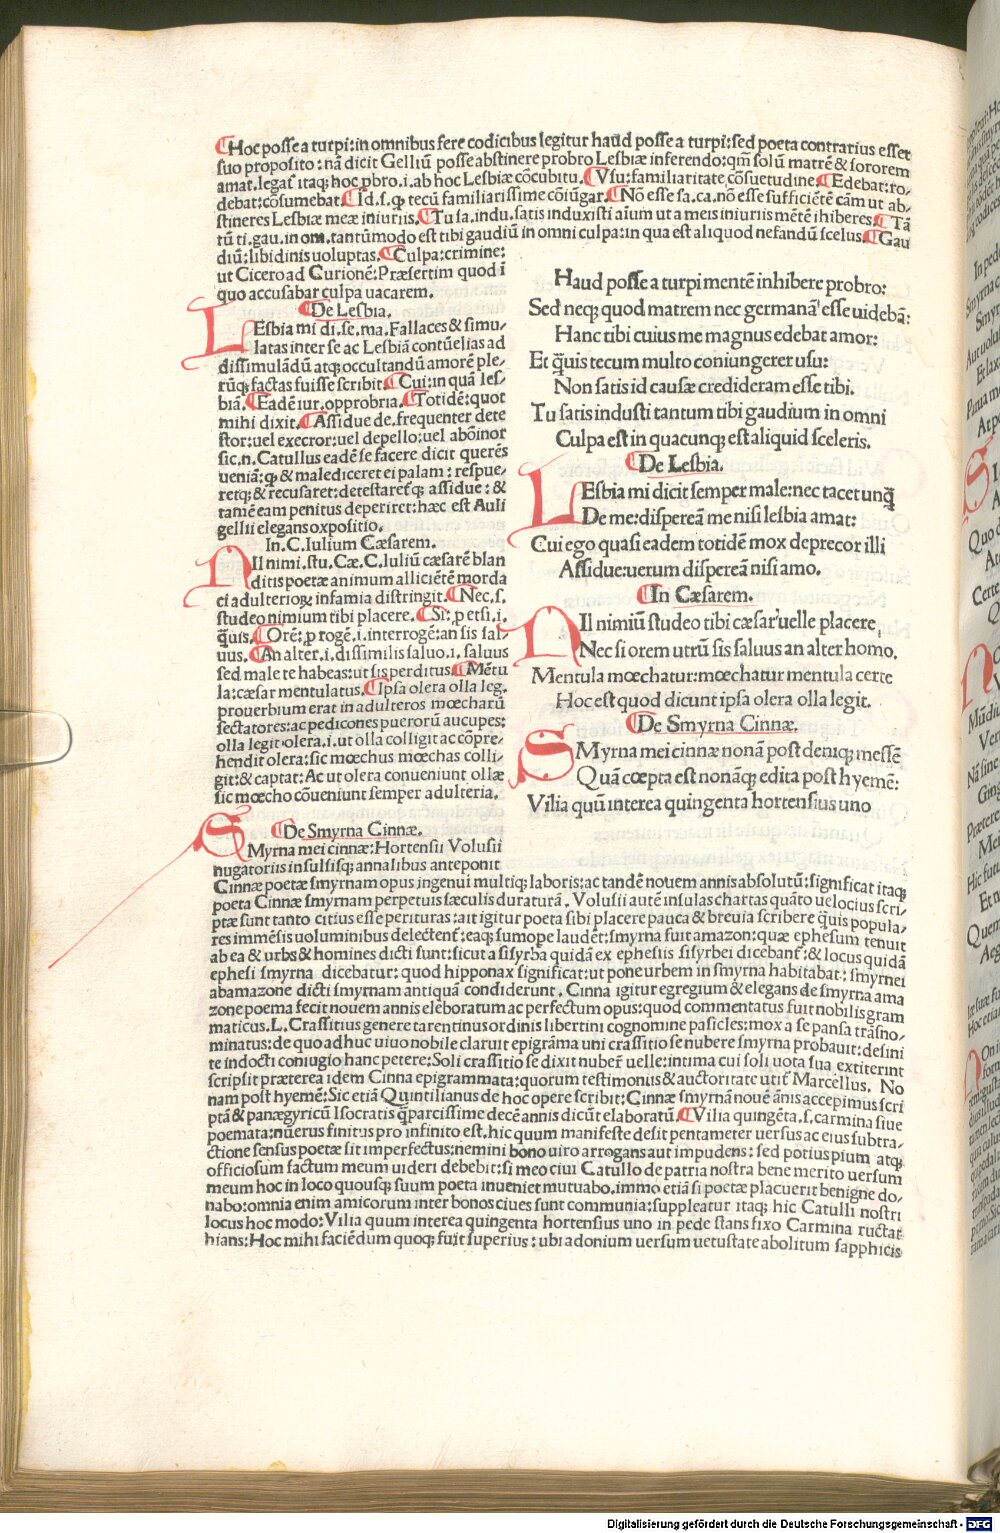 ¶Hoc posse a turpi:in omnibus fere codicibus legitur haud posse a turpi:sed poeta contrarius esset
suo proposito:nã dicit Gelliũ posse abstinere probro Lesbiæ inferendo:qm̃ solũ matrẽ & sororem
amat.legat̃ itaq; hoc pbro.i.ab hoc Lesbiæ cõcubitu.¶Vsu:familiaritate cõsuetudine.¶Edebat:ro/
debat:cõsumebat.¶Id.s.q̨ tecũ familiarissime cõiũgar.¶Nõ esse sa.ca.nõ esse sufficiẽtẽ cãm ut ab/
stineres Lesbiæ meæ iniuriis.¶Tu sa.indu.satis induxisti aĩum ut a meis iniuriis mẽtẽ ĩhiberes.¶Tã
tũ ti.gau.in om.tantũmodo est tibi gaudiũ in omni culpa:in qua est aliquod nefandũ scelus.¶Gau
diũ:libidinis uoluptas.¶Culpa:crimine:
ut Cicero ad Curionẽ:Præsertim quod ĩ
quo accusabar culpa uacarem.
¶De Lesbia.
LEsbia mi di.se.ma.Fallaces & simu/
latas inter se ac Lesbiã contũelias ad
dissimulãdũ atq; occultandũ amorẽ ple/
rũq; factas fuisse scribit.¶Cui:in quã les/
biã.¶Eadẽ iur.opprobria.¶Totidẽ:quot
mihi dixit.¶Assidue de.frequenter dete
stor:uel execror:uel depello:uel abõinor
sic.n.Catullus eadẽ se facere dicit querẽs
ueniã:q̨ & malediceret ei palam:respue/
retq; & recusaret:detestaret̃q; assidue:&
tamẽ eam penitus deperiret:hæc est Auli
gellii elegans oxpositio.
In.C.Iulium Cæsarem.
NIl nimi.stu.Cæ.C.Iuliũ cæsarẽ blan
ditiis poetæ animum alliciẽtẽ morda
ci adulterioꝝ infamia distringit.¶Nec.s.
studeo nimium tibi placere.¶Si:p etsi.i.
q̃uis.¶Orẽ:p rogẽ.i.interrogẽ:an sis sal/
uus.¶An alter.i.dissimilis saluo.i.saluus
sed male te habeas:ut sis perditus.¶Mẽtu
la:cæsar mentulatus.¶Ipsa olera olla leg.
prouerbium erat in adulteros mœcharũ
sectatores:ac pedicones puerorũ aucupes:
olla legit olera.i.ut olla colligit ac cõpre/
hendit olera:sic mœchus mœchas colli/
git:& captat:Ac ut olera conueniunt ollæ
sic mœcho cõueniunt semper adulteria.
¶De Smyrna Cinnæ.
SMyrna mei cinnæ:Hortensii Volusii
nugatoriis insulsisq; annalibus anteponit
Haud posse a turpi mentẽ inhibere probro:
Sed neq; quod matrem nec germanã esse uidebã:
Hanc tibi cuius me magnus edebat amor:
Et q̃uis tecum multo coniungeret usu:
Non satis id causæ credideram esse tibi.
Tu satis industi tantum tibi gaudium in omni
Culpa est in quacunq; est aliquid sceleris.
¶De Lesbia.
LEsbia mi dicit semper male:nec tacet unq̃
De me:dispereã me nisi lesbia amat:
Cui ego quasi eadem totidẽ mox deprecor illi
Assidue:uerum dispereã nisi amo.
¶In Cæsarem.
NIl nimiũ studeo tibi cæsar uelle placere,
Nec si orem utrũ sis saluus an alter homo.
Mentula mœchatur:mœchatur mentula certe
Hoc est quod dicunt ipsa olera olla legit.
¶De Smyrna Cinnæ.
SMyrna mei cinnæ nonã post deniq; messẽ
Quã cœpta est nonãq; edita post hyemẽ:
Vilia quũ interea quingenta hortensius uno
Cinnæ poetæ smyrnam opus ingenui multiq; laboris:ac tandẽ nouem annis absolutũ:significat itaq;
poeta Cinnæ smyrnam perpetuis sæculis duraturã. Volusii autẽ insulas chartas quãto uelocius scri/
ptæ sunt tanto citius esse perituras:ait igitur poeta sibi placere pauca & breuia scribere q̃uis popula/
res immẽsis uoluminibus delectent̃:eaq; sumope laudẽt:smyrna fuit amazon:quæ ephesum tenuit
ab ea & urbs & homines dicti sunt:sicut a sisyrba quidã ex ephesiis sisyrbei dicebant̃:& locus quidã
ephesi smyrna dicebatur:quod hipponax significat:ut pone urbem in smyrna habitabat:smyrnei
abamazone dicti smyrnam antiquã condiderunt. Cinna igitur egregium & elegans de smyrna ama
zone poema fecit nouem annis eleboratum ac perfectum opus:quod commentatus fuit nobilis gram
maticus.L.Crassitius genere tarentinus ordinis libertini cognomine pasicles:mox a se pansa trãsno/
minatus:de quo adhuc uiuo nobile claruit epigrãma uni crassitio se nubere smyrna probauit:desini
te indocti coniugio hanc petere:Soli crassitio se dixit nuber̃ uelle:intima cui soli uota sua extiterint
scripsit præterea idem Cinna epigrammata:quorum testimoniis & auctoritate utit̃ Marcellus. No
nam post hyemẽ:Sic etiã Quintilianus de hoc opere scribit:Cinnæ smyrnã nouẽ ãnis accepimus scri
ptã & panægyricũ Isocratis q̃parcissime decẽ annis dicũt elaboratũ.¶Vilia quingẽta.s.carmina siue
poemata:nũerus finitus pro infinito est.hic quum manifeste desit pentameter uersus ac eius subtra/
ctione sensus poetæ sit imperfectus:nemini bono uiro arrogans aut impudens:sed potius pium atq;
officiosum factum meum uideri debebit:si meo ciui Catullo de patria nostra bene merito uersum
meum hoc in loco quousq; suum poeta inueniet mutuabo.immo etiã si poetæ placuerit benigne do/
nabo:omnia enim amicorum inter bonos ciues sunt communia:suppleatur itaq; hic Catulli nostri
locus hoc modo:Vilia quum interea quingenta hortensius uno in pede stans fixo Carmina ructat
hians:Hoc mihi faciẽdum quoq; fuit superius:ubi adonium uersum uetustate abolitum sapphicis
Digitalisierung gefördert durch die Deutsche Forschungsgemeinschaft - DFG